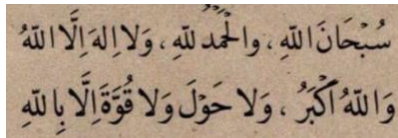 سُبْحَانَ اللهِ، والْحَمْدُ للهِ، وَلا اِلهَ اِلَّا اللهُ
وَاللهُ اَكْبَرُ، وَلا حَوْلَ وَلا قُوَّةَ اِلَّا بِاللهِ